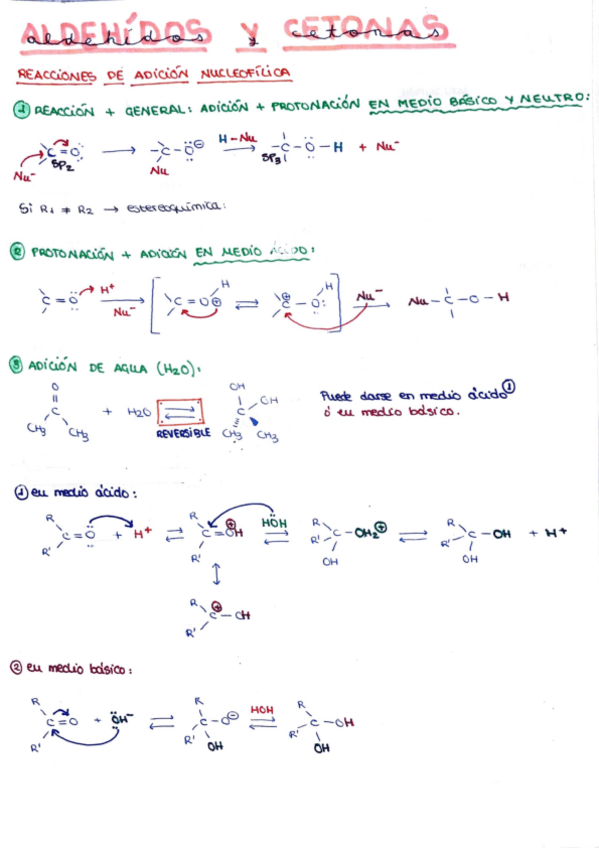 ALDEHÍDOS Y CETONAS
aldehídos y cetonas
REACCIONES DE ADICIÓN NUCLEOFÍLICA
① REACCIÓN + GENERAL: ADICIÓN + PROTONACIÓN EN MEDIO BÁSICO Y NEUTRO:
C=O → -C-O⊖ H-Nu → -C-O-H + Nu⁻
SP2 SP3
Nu⁻ Nu
Si R1 ≠ R2 → estereoquímica:
② PROTONACIÓN + ADICIÓN EN MEDIO ÁCIDO:
C=O H⁺ Nu⁻ → [ C=O⊕ H ⇌ ⊕C-O: H ] Nu⁻ → Nu-C-O-H
③ ADICIÓN DE AGUA (H2O):
O OH
C + H2O ⇌ C OH
CH3 CH3 REVERSIBLE CH3 CH3
Puede darse en medio ácido ①
ó eu medio básico.
① eu medio ácido:
R R' C=O + H⁺ ⇌ R R' C=OH ⊕ HOH ⇌ R R' C-OH2⊕ OH ⇌ R R' C-OH OH + H⁺
R R' ⊕C-OH
② eu medio básico:
R R' C=O + OH⁻ ⇌ R R' C-O⊖ OH HOH ⇌ R R' C-OH OH